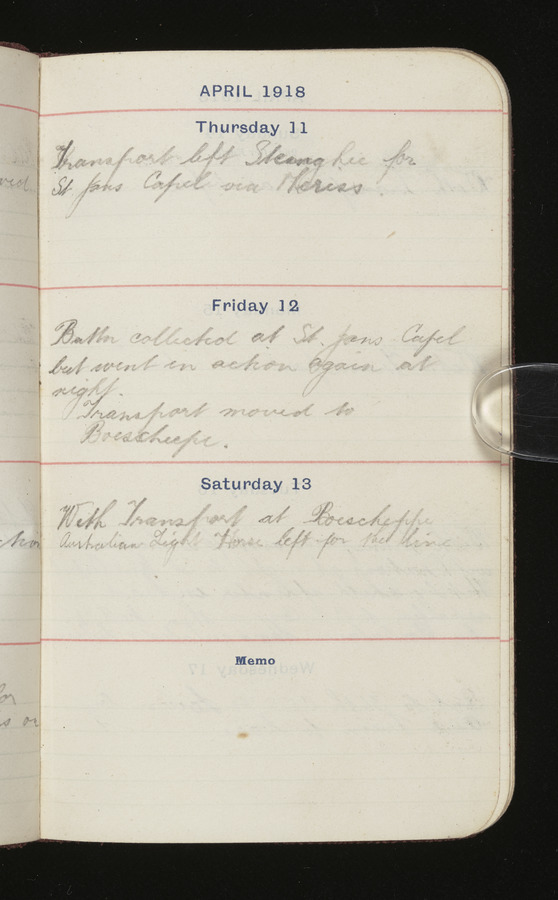 APRIL 1918
Thursday 11
Transport left Steenghie for
St Jans Capel via Meriss
Friday 12
Battn collected at St. Jans Capel
but went in action again at
night.
Transport moved to
Boescheepe.
Saturday 13
With Transport at Boescheppe
Australian Light Horse left for the line
Memo